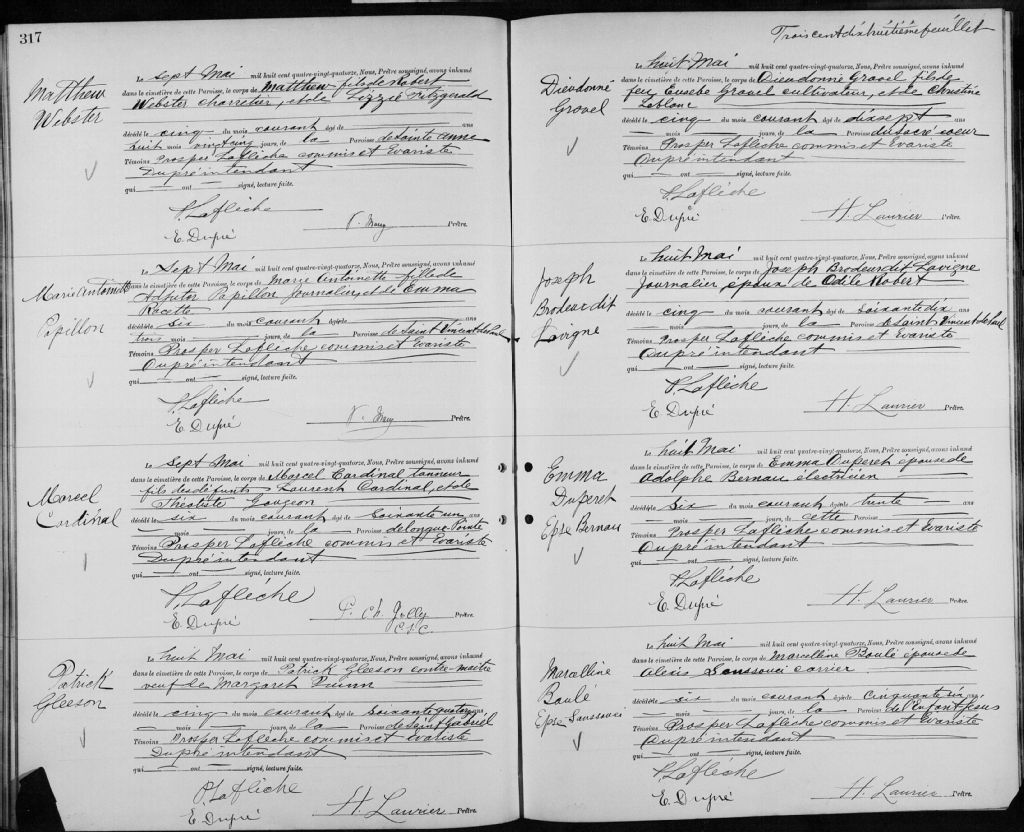 317
Matthew
Webster
Le Sept Mai mil huit cent quatre-vingt-quatorze, Nous, Prêtre soussigné, avons inhumé
dans le cimetière de cette Paroisse, le corps de Matthew fils de Robert
Webster charretier, et de Lizzie Fitzgerald
décédé le cinq du mois courant âgé de ans
huit mois jours, de la Paroisse de Sainte Anne
Témoins Prosper Laflèche commis et Evariste
Dupré intendant
qui ont signé, lecture faite.
P. Laflèche
E. Dupré
Prêtre.
Marie Antoinette
Papillon
Le Sept Mai mil huit cent quatre-vingt-quatorze, Nous, Prêtre soussigné, avons inhumé
dans le cimetière de cette Paroisse, le corps de Marie Antoinette fille de
Adjutor Papillon journalier, et de Emma
Racette
décédé le six du mois courant âgé de ans
trois mois jours, de la Paroisse de Saint Vincent de Paul
Témoins Prosper Laflèche commis et Evariste
Dupré intendant
qui ont signé, lecture faite.
P. Laflèche
E. Dupré
Prêtre.
Marcel
Cardinal
Le Sept Mai mil huit cent quatre-vingt-quatorze, Nous, Prêtre soussigné, avons inhumé
dans le cimetière de cette Paroisse, le corps de Marcel Cardinal tanneur
fils des défunts Laurent Cardinal, et de
Théotiste Gougeon
décédé le six du mois courant âgé de Soixante un ans
mois jours, de la Paroisse de Longue Pointe
Témoins Prosper Laflèche commis et Evariste
Dupré intendant
qui ont signé, lecture faite.
P. Laflèche
E. Dupré
P. Ch. Jolly
Prêtre.
Patrick
Gleeson
Le huit Mai mil huit cent quatre-vingt-quatorze, Nous, Prêtre soussigné, avons inhumé
dans le cimetière de cette Paroisse, le corps de Patrick Gleeson contre-maitre
veuf de Margaret Quinn
décédé le cinq du mois courant âgé de Soixante quatorze ans
mois jours, de la Paroisse de Saint Gabriel
Témoins Prosper Laflèche commis et Evariste
Dupré intendant
qui ont signé, lecture faite.
P. Laflèche
E. Dupré
H. Laurier Prêtre.
Trois cent dix huitième feuillet
Dieudonné
Gravel
Le huit Mai mil huit cent quatre-vingt-quatorze, Nous, Prêtre soussigné, avons inhumé
dans le cimetière de cette Paroisse, le corps de Dieudonné Gravel fils de
feu Eusebe Gravel cultivateur, et de Christine
Leblanc
décédé le cinq du mois courant âgé de dix sept ans
mois jours, de la Paroisse du Sacré Coeur
Témoins Prosper Laflèche commis et Evariste
Dupré intendant
qui ont signé, lecture faite.
P. Laflèche
E. Dupré
H. Laurier Prêtre.
Joseph
Brodeur dit
Lavigne
Le huit Mai mil huit cent quatre-vingt-quatorze, Nous, Prêtre soussigné, avons inhumé
dans le cimetière de cette Paroisse, le corps de Joseph Brodeur dit Lavigne
journalier époux de Odile Robert
décédé le cinq du mois courant âgé de Soixante dix ans
mois jours, de la Paroisse de Saint Vincent de Paul
Témoins Prosper Laflèche commis et Evariste
Dupré intendant
qui ont signé, lecture faite.
P. Laflèche
E. Dupré
H. Laurier Prêtre.
Emma
Duperet
Epse Bernau
Le huit Mai mil huit cent quatre-vingt-quatorze, Nous, Prêtre soussigné, avons inhumé
dans le cimetière de cette Paroisse, le corps de Emma Duperet épouse de
Adolphe Bernau électricien
décédé le Six du mois courant âgé de trente ans
mois jours, de cette Paroisse
Témoins Prosper Laflèche commis et Evariste
Dupré intendant
qui ont signé, lecture faite.
P. Laflèche
E. Dupré
H. Laurier Prêtre.
Marcelline
Boulé
Epse Sanssouci
Le huit Mai mil huit cent quatre-vingt-quatorze, Nous, Prêtre soussigné, avons inhumé
dans le cimetière de cette Paroisse, le corps de Marcelline Boulé épouse de
Alexis Sanssouci carrier
décédé le six du mois courant âgé de Cinquante six ans
mois jours, de la Paroisse de l'Enfant Jésus
Témoins Prosper Laflèche commis et Evariste
Dupré intendant
qui ont signé, lecture faite.
P. Laflèche
E. Dupré
H. Laurier Prêtre.